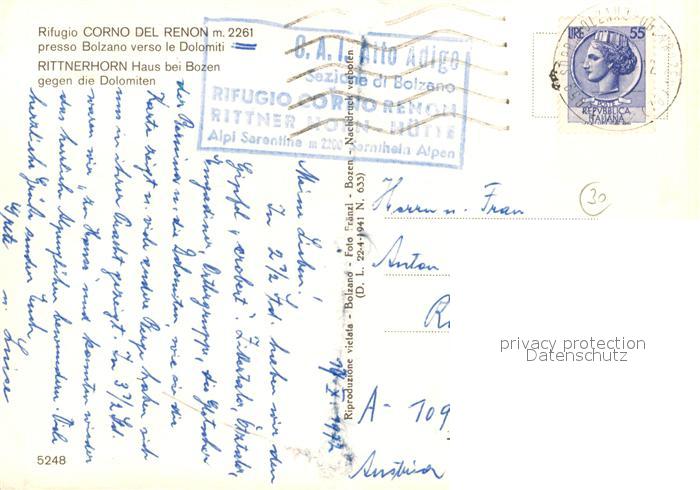 Rifugio CORNO DEL RENON m. 2261
presso Bolzano verso le Dolomiti
RITTNERHORN Haus bei Bozen
gegen die Dolomiten
C. A. I. Alto Adige
Sezione di Bolzano
RIFUGIO CORNO RENON
RITTNER HORN - HÜTTE
Alpi Sarentine m 2260 Sarnthein Alpen
LIRE 55
REPVBBLICA
ITALIANA
30
Meine Lieben!
In 2 1/2 Std. haben wir den
Gipfel "erobert". Zillertaler, Ötztaler,
Engadiner, Ortlergruppe, die Gletscher
der Bernina u. die Dolomiten, wie sie die
Karte zeigt u. viele andere Berge haben sich
uns in ihrer Pracht gezeigt. In 3 1/2 Std.
waren wir "zu Haus" und konnten wieder
das herrliche Alpenglühen bewundern. Viele
herzliche Grüße senden Euch
Grete u. Luise
Riproduzione vietata - Bolzano - Foto Fränzl - Bozen - Nachdruck verboten
(D. L. 22-4-1941 N. 633)
Herrn u. Frau
Anton
A - 109
Austria
privacy protection
Datenschutz
5248